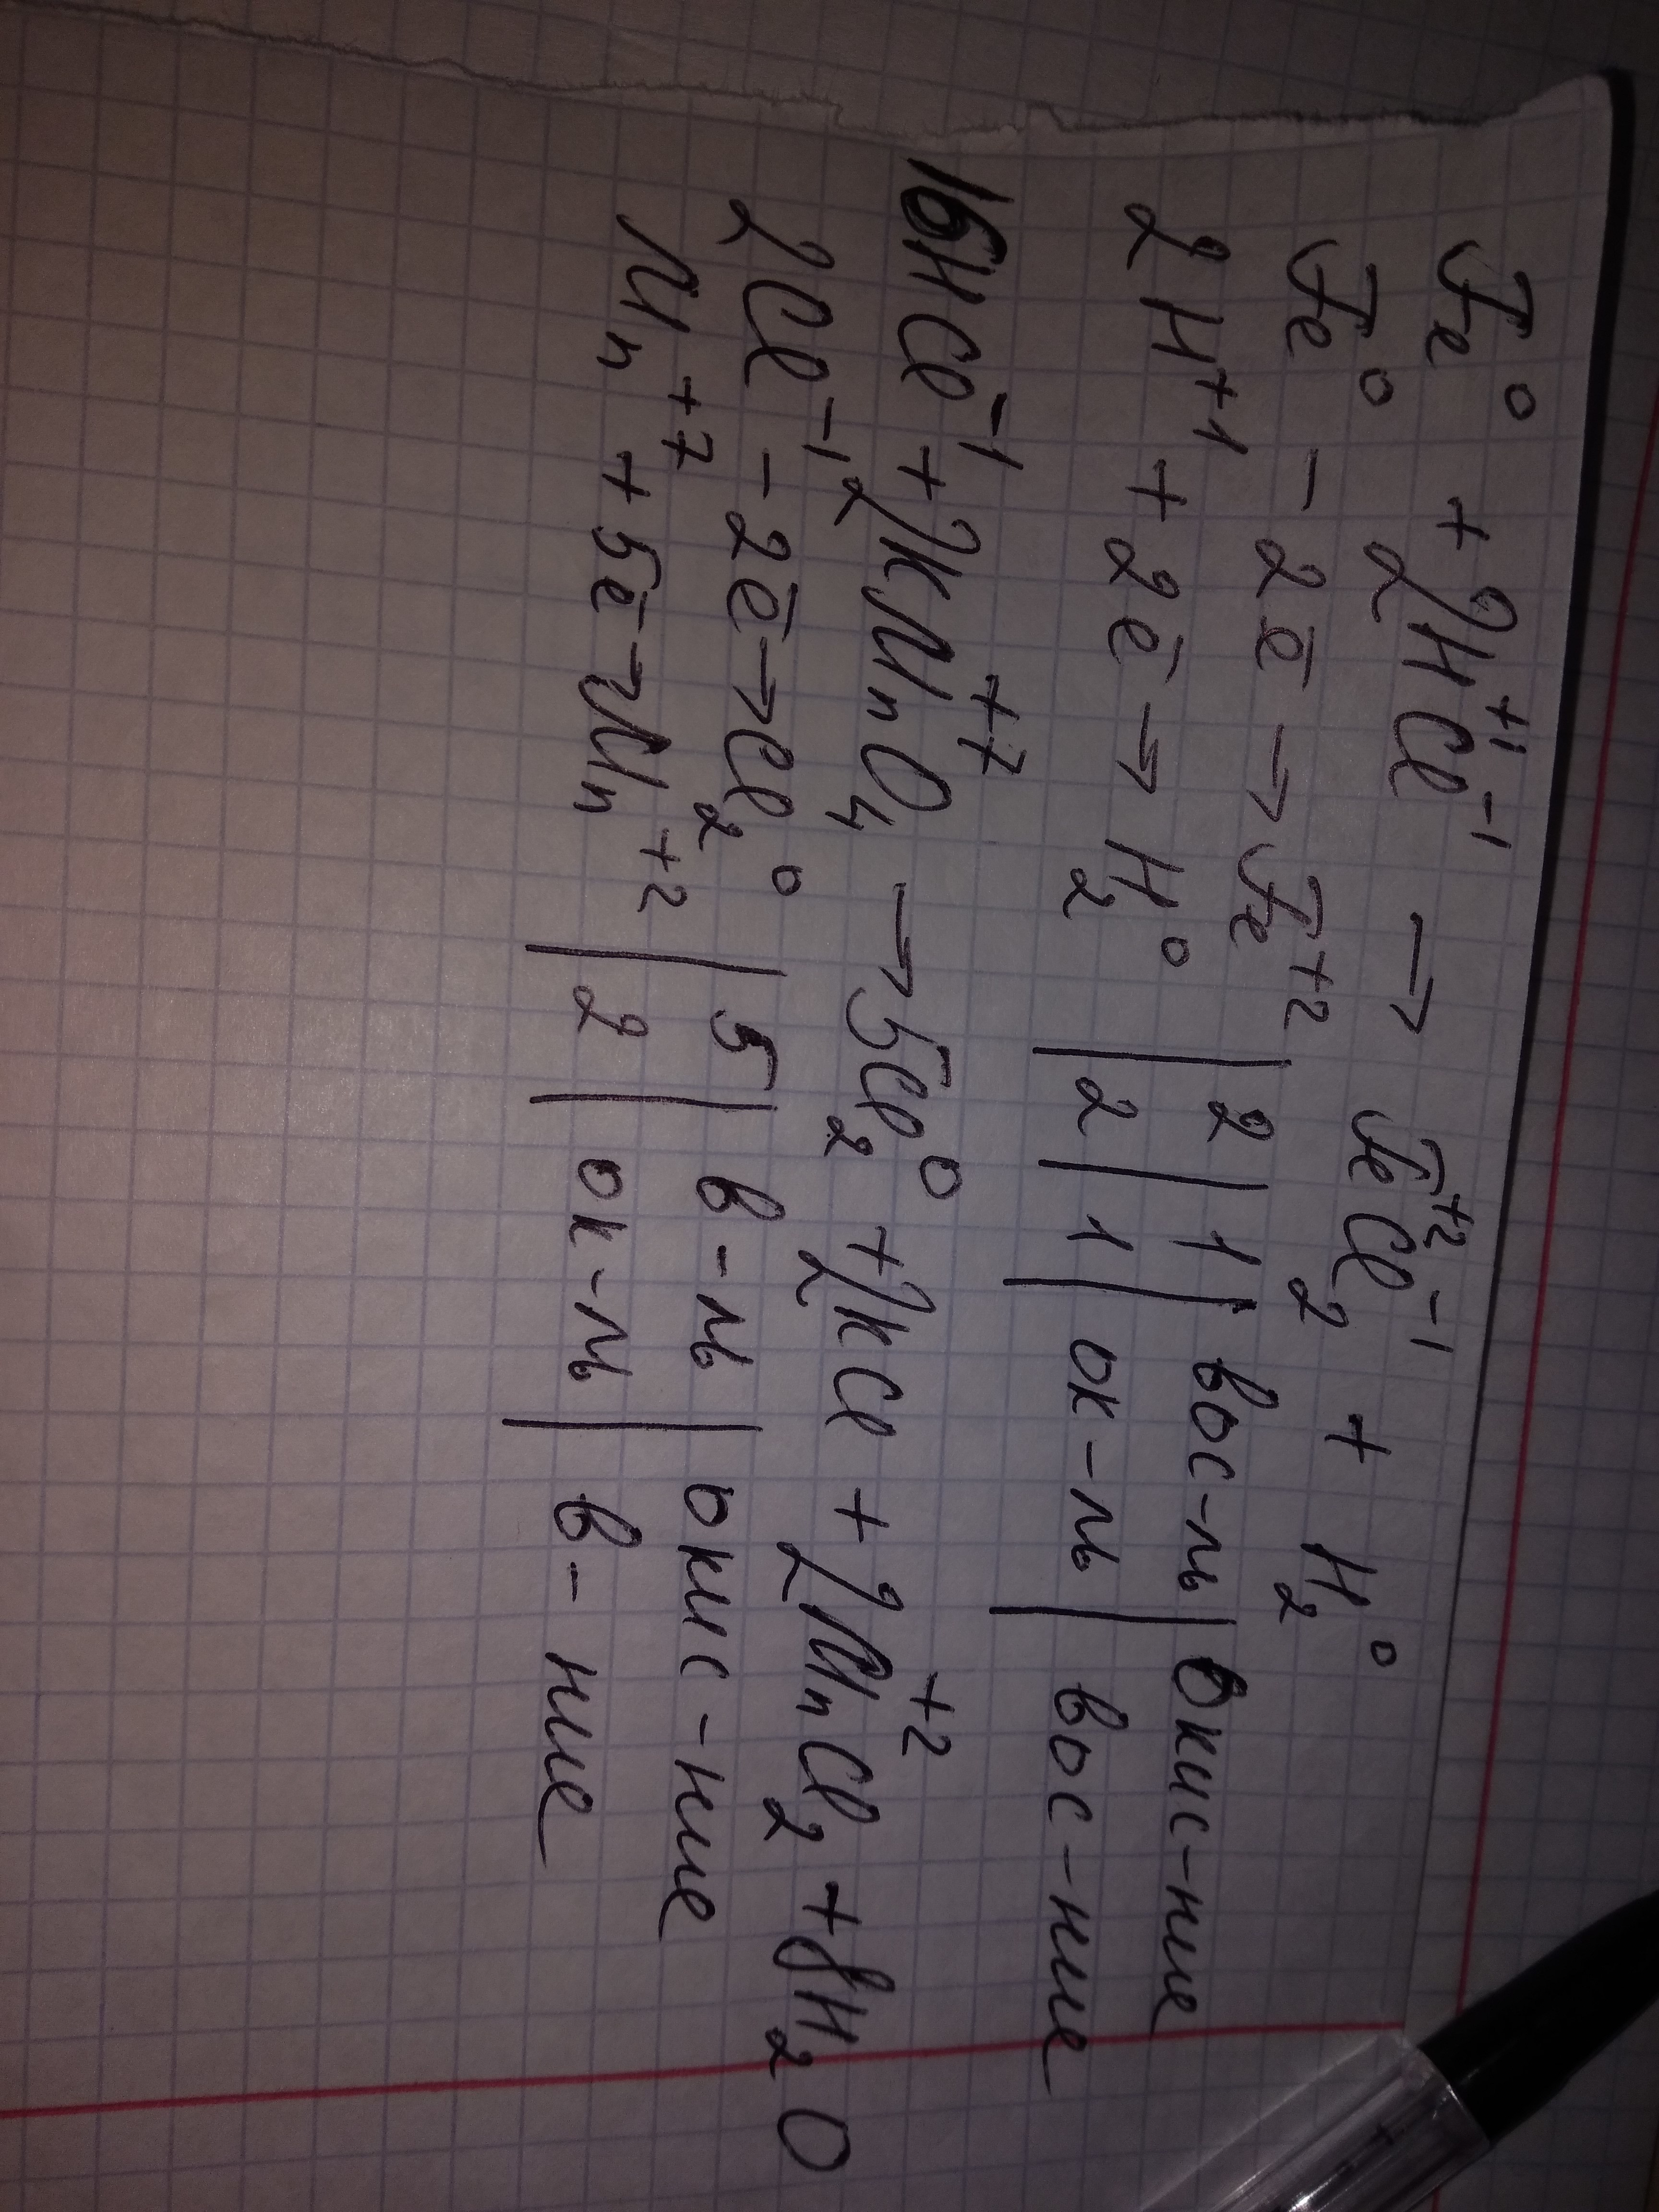 Fe⁰ + 2H⁺¹Cl⁻¹ → Fe⁺²Cl₂⁻¹ + H₂⁰
Fe⁰ - 2ē → Fe⁺² | 2 | 1 | вос-ль | окис-ние
2H⁺¹ + 2ē → H₂⁰ | 2 | 1 | ок-ль | вос-ние
16HCl⁻¹ + 2KMn⁺⁷O₄ → 5Cl₂⁰ + 2KCl + 2Mn⁺²Cl₂ + 8H₂O
2Cl⁻¹ - 2ē → Cl₂⁰ | 5 | в-ль | окис-ние
Mn⁺⁷ + 5ē → Mn⁺² | 2 | ок-ль | в-ние